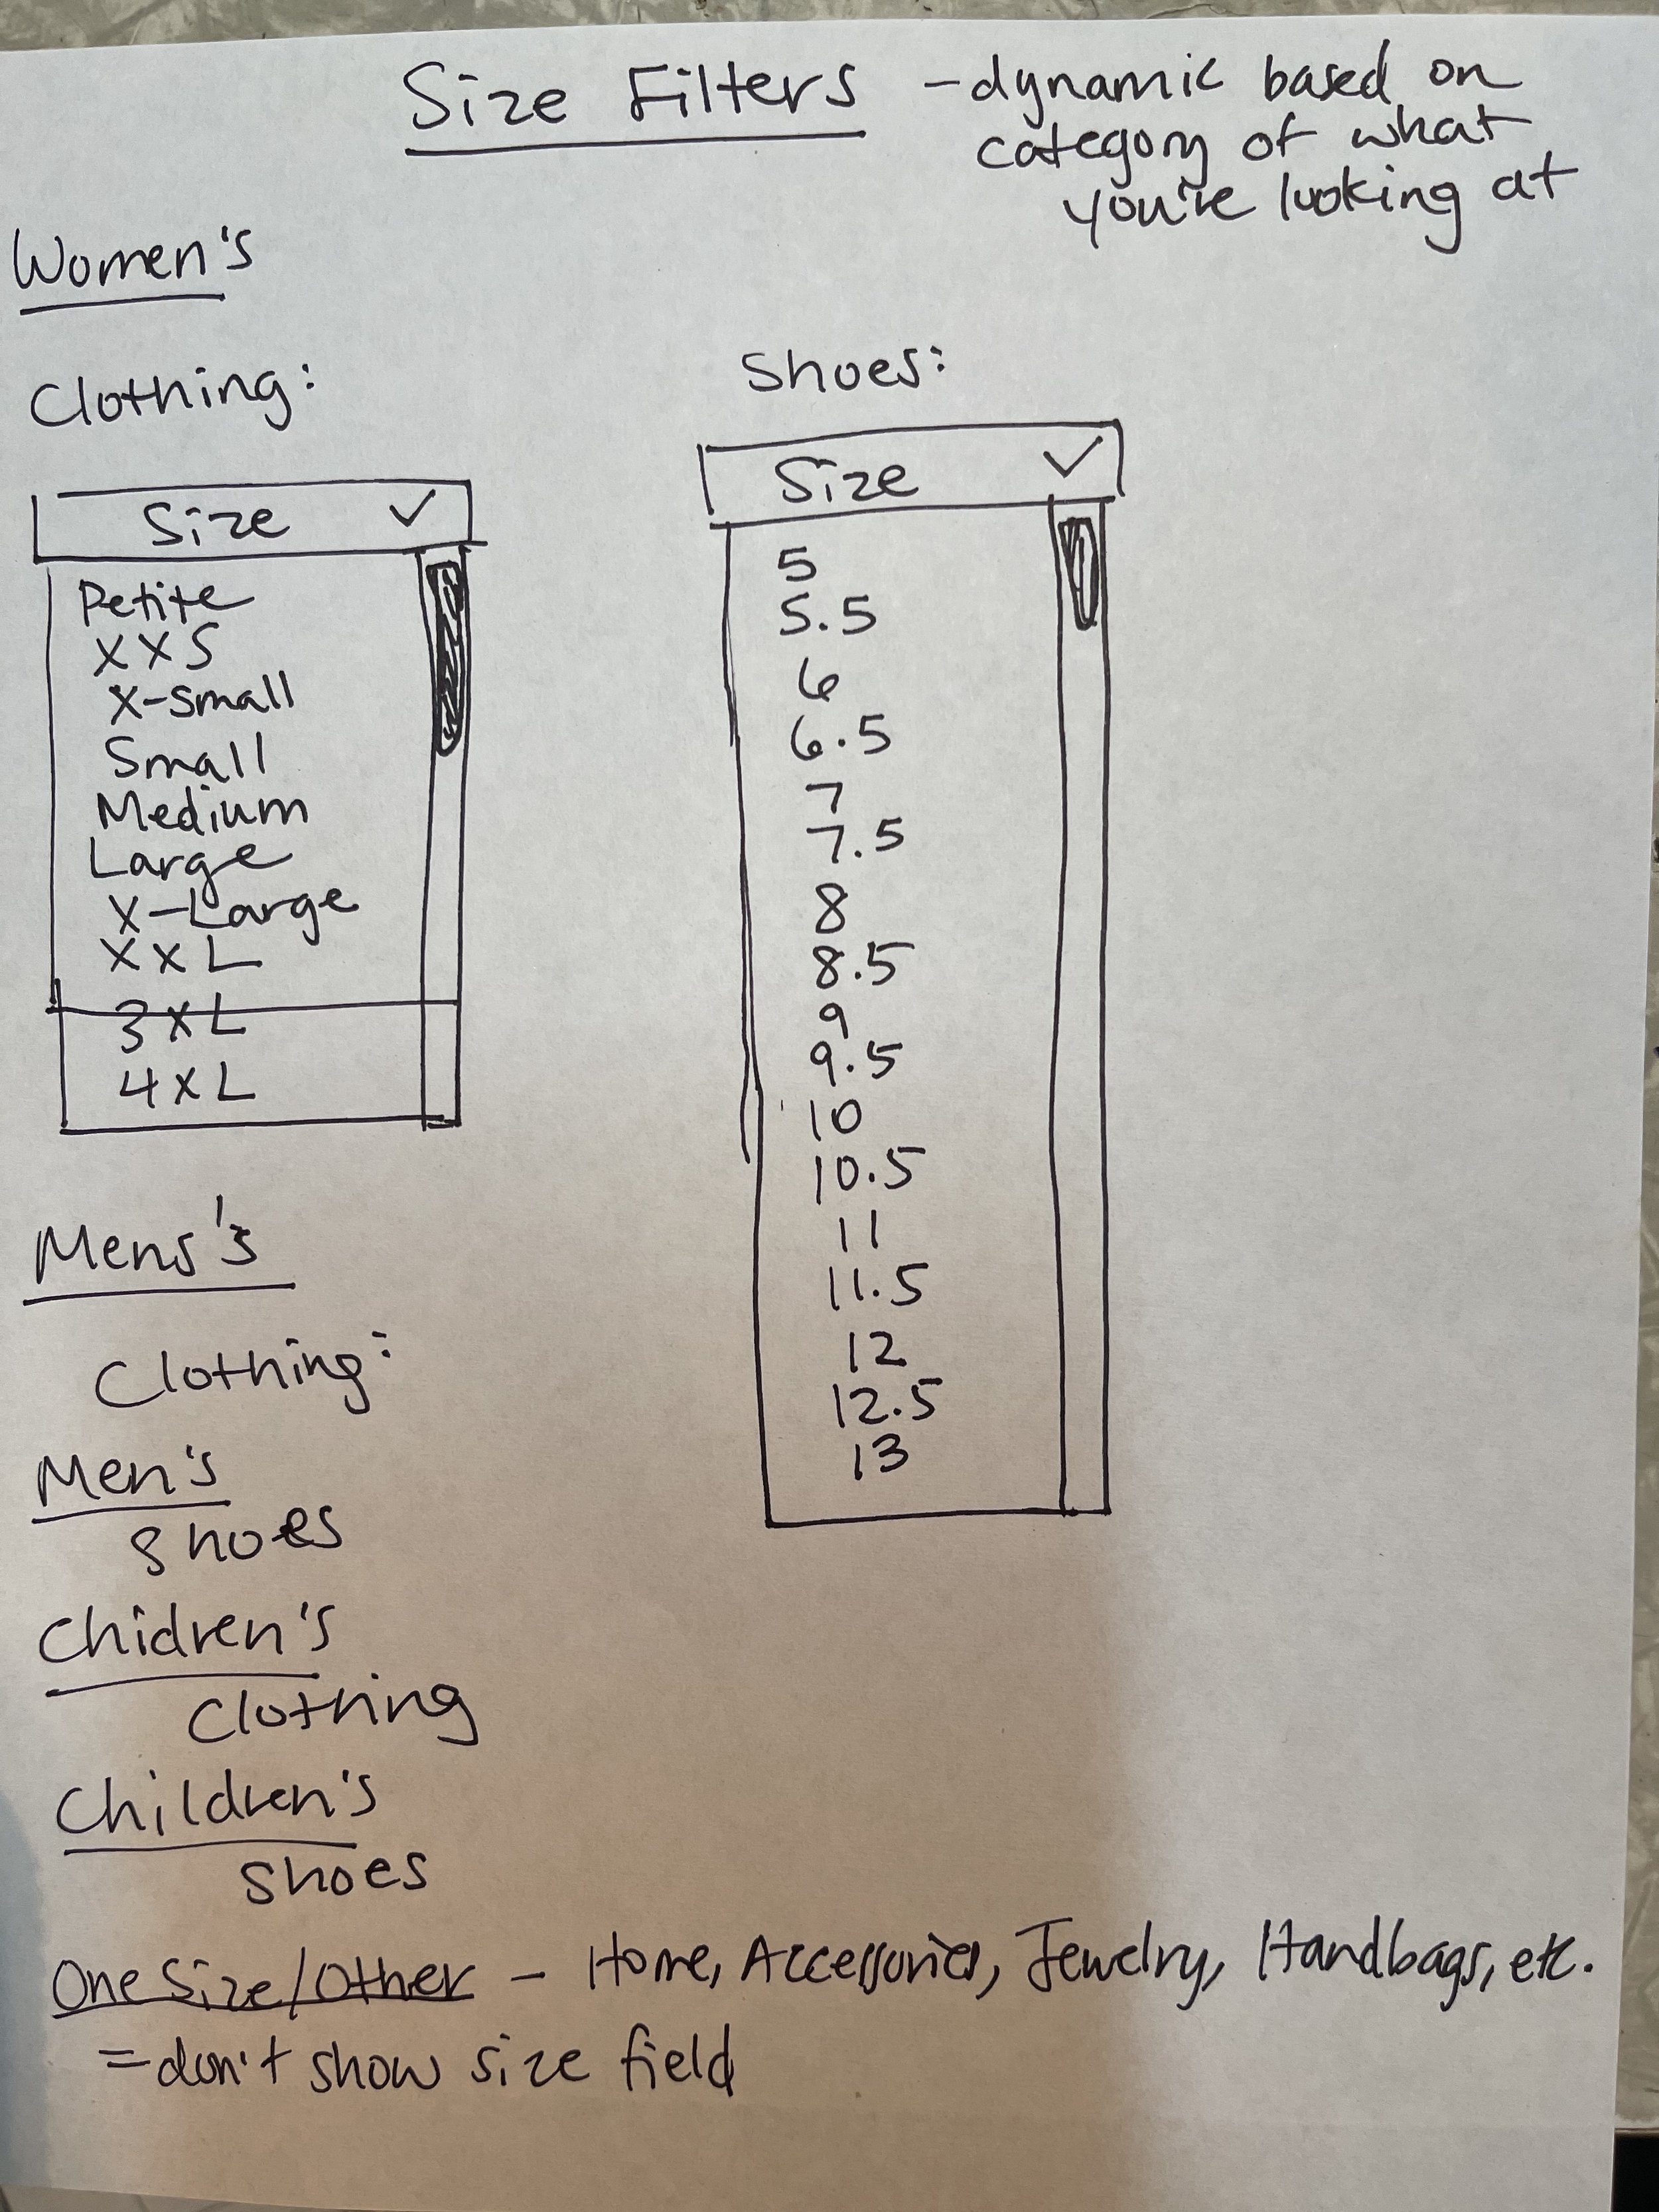 Size Filters - dynamic based on
category of what
you're looking at
Women's
Clothing:
Size
Petite
XXS
X-small
Small
Medium
Large
X-Large
XXL
3XL
4XL
Shoes:
Size
5
5.5
6
6.5
7
7.5
8
8.5
9
9.5
10
10.5
11
11.5
12
12.5
13
Mens's
Clothing:
Men's
shoes
Chidren's
Clothing
Children's
Shoes
One Size/Other - Home, Accessories, Jewelry, Handbags, etc.
=don't show size field